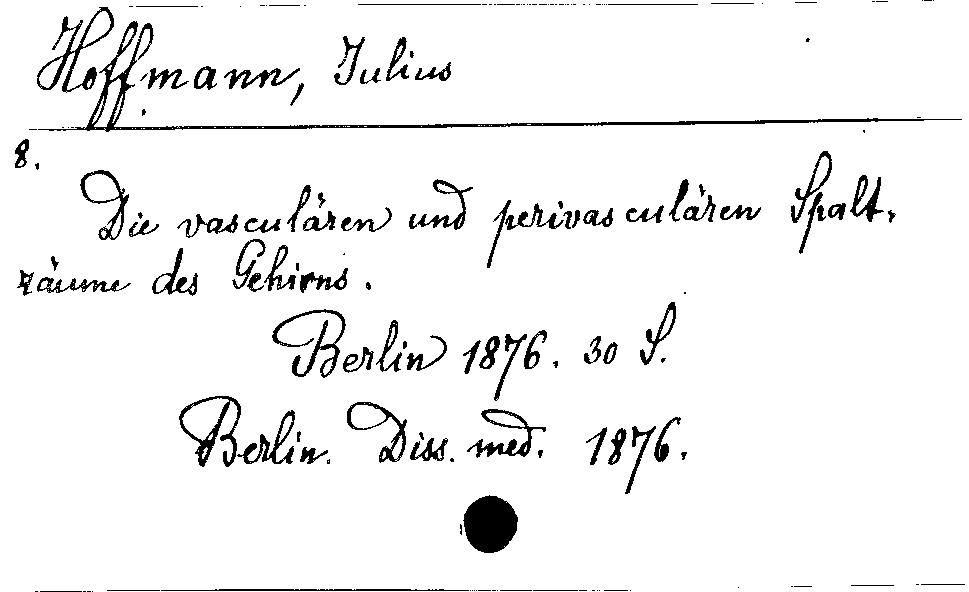 Hoffmann, Julius
8.
Die vasculären und perivasculären Spalt-
räume des Gehirns.
Berlin 1876. 30 S.
Berlin. Diss. med. 1876.